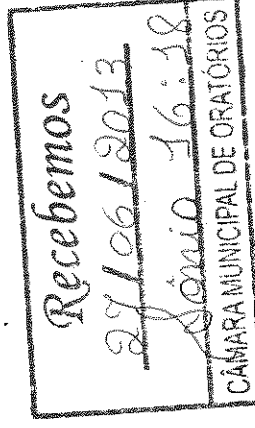 Recebemos
27/06/2013
Sônia 16:18
CÂMARA MUNICIPAL DE ORATÓRIOS